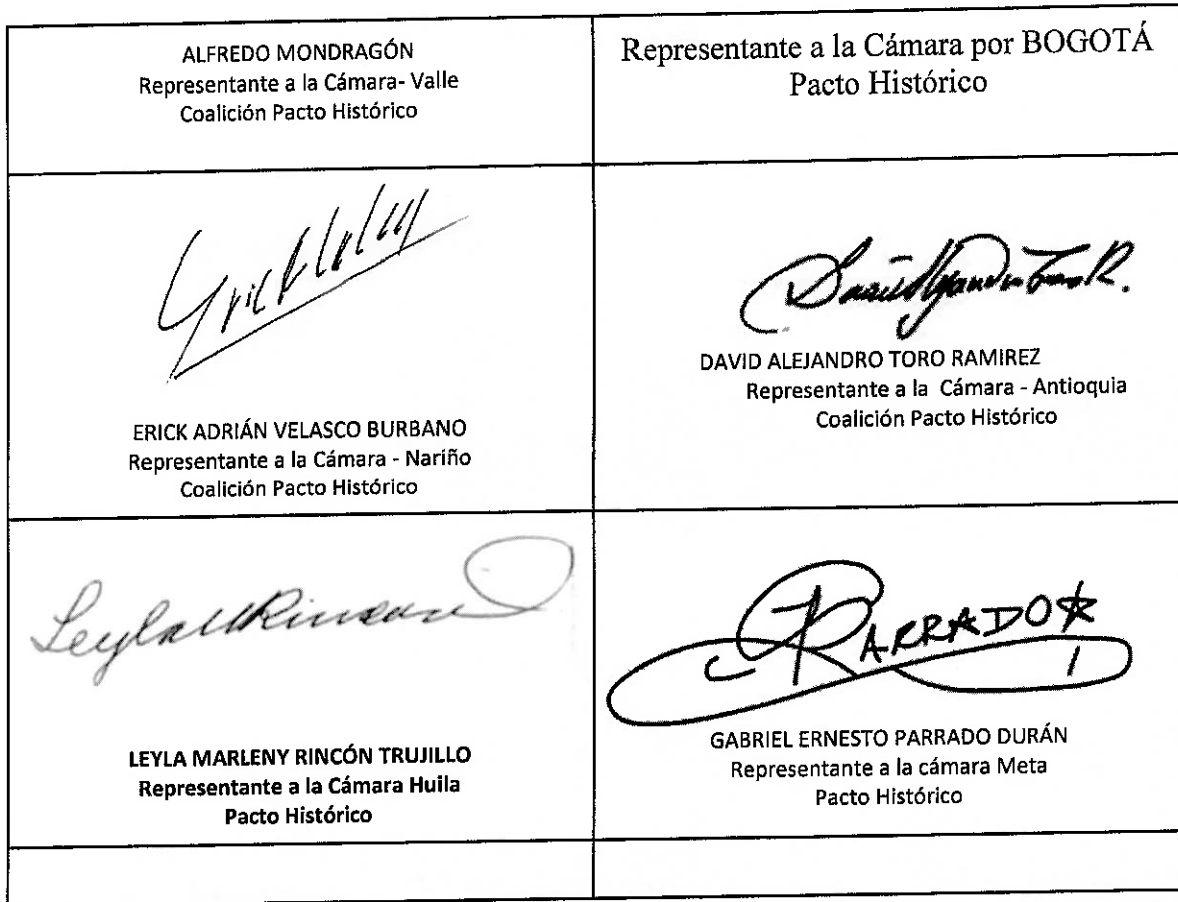 ALFREDO MONDRAGÓN
Representante a la Cámara- Valle
Coalición Pacto Histórico
Representante a la Cámara por BOGOTÁ
Pacto Histórico
ERICK ADRIÁN VELASCO BURBANO
Representante a la Cámara - Nariño
Coalición Pacto Histórico
DAVID ALEJANDRO TORO RAMIREZ
Representante a la Cámara - Antioquia
Coalición Pacto Histórico
LEYLA MARLENY RINCÓN TRUJILLO
Representante a la Cámara Huila
Pacto Histórico
PARRADO
GABRIEL ERNESTO PARRADO DURÁN
Representante a la cámara Meta
Pacto Histórico